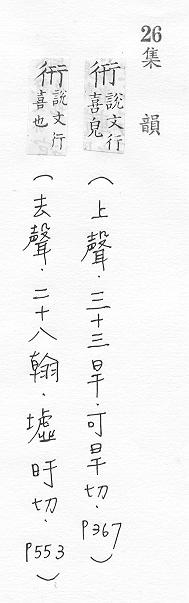 26集韻
衎說文行喜皃（上聲．三十三旱．可旱切．P367）
衎說文行喜也（去聲．二十八翰．墟旰切．P553）